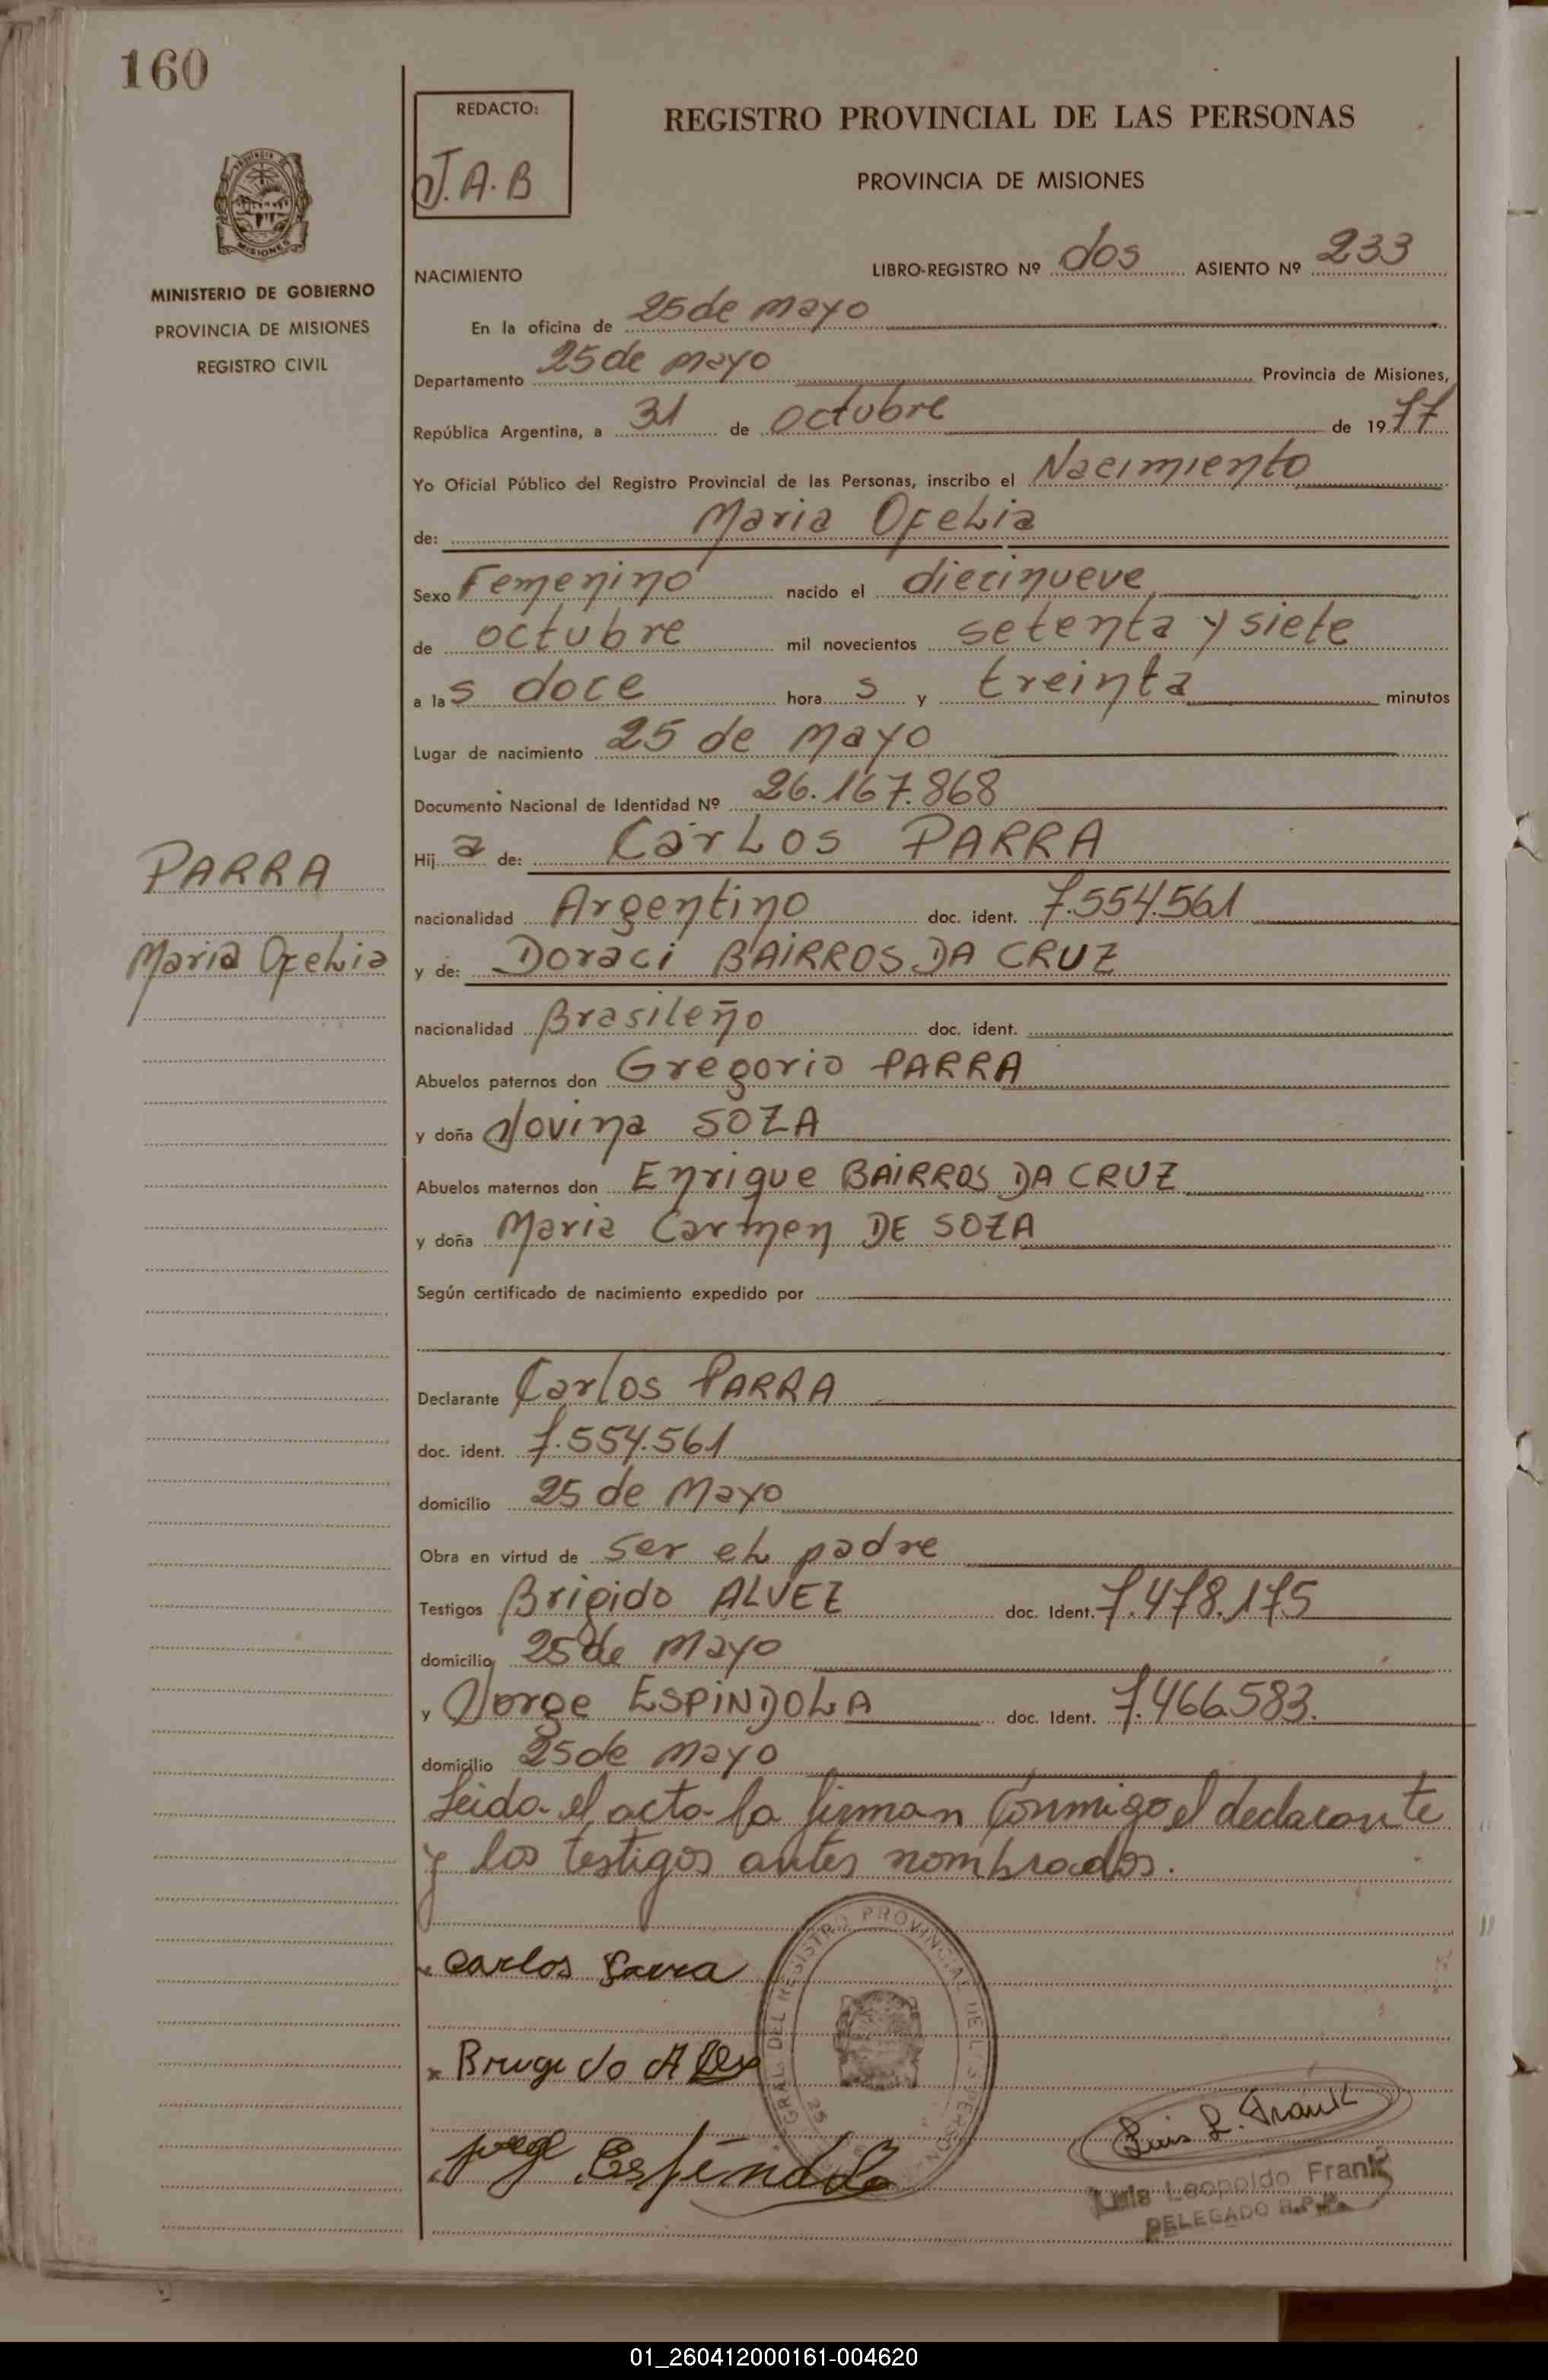 160
REDACTO:
J.A.B
REGISTRO PROVINCIAL DE LAS PERSONAS
PROVINCIA DE MISIONES
MINISTERIO DE GOBIERNO
PROVINCIA DE MISIONES
REGISTRO CIVIL
NACIMIENTO
LIBRO-REGISTRO Nº dos ASIENTO Nº 233
En la oficina de 25 de mayo
Departamento 25 de mayo Provincia de Misiones,
República Argentina, a 31 de octubre de 1977
Yo Oficial Público del Registro Provincial de las Personas, inscribo el Nacimiento
de: Maria Ofelia
Sexo Femenino nacido el diecinueve
de octubre mil novecientos setenta y siete
a las doce horas y treinta minutos
Lugar de nacimiento 25 de mayo
Documento Nacional de Identidad Nº 26.167.868
Hija de: Carlos PARRA
PARRA
Maria Ofelia
nacionalidad Argentino doc. ident. 7.554.561
y de: Doraci BAIRROS DA CRUZ
nacionalidad Brasileño doc. ident.
Abuelos paternos don Gregorio PARRA
y doña Jovina SOZA
Abuelos maternos don Enrique BAIRROS DA CRUZ
y doña Maria Carmen DE SOZA
Según certificado de nacimiento expedido por
Declarante Carlos PARRA
doc. ident. 7.554.561
domicilio 25 de Mayo
Obra en virtud de ser el padre
Testigos Brigido ALVEZ doc. Ident. 7.478.175
domicilio 25 de mayo
y Jorge ESPINDOLA doc. Ident. 7.466.583.
domicilio 25 de mayo
Leida el acta la firman conmigo el declarante
y los testigos antes nombrados.
Carlos Parra
Jorge Espindola
Luis L. Frank
Luis Leopoldo Frank
DELEGADO R.P.P.
01_260412000161-004620